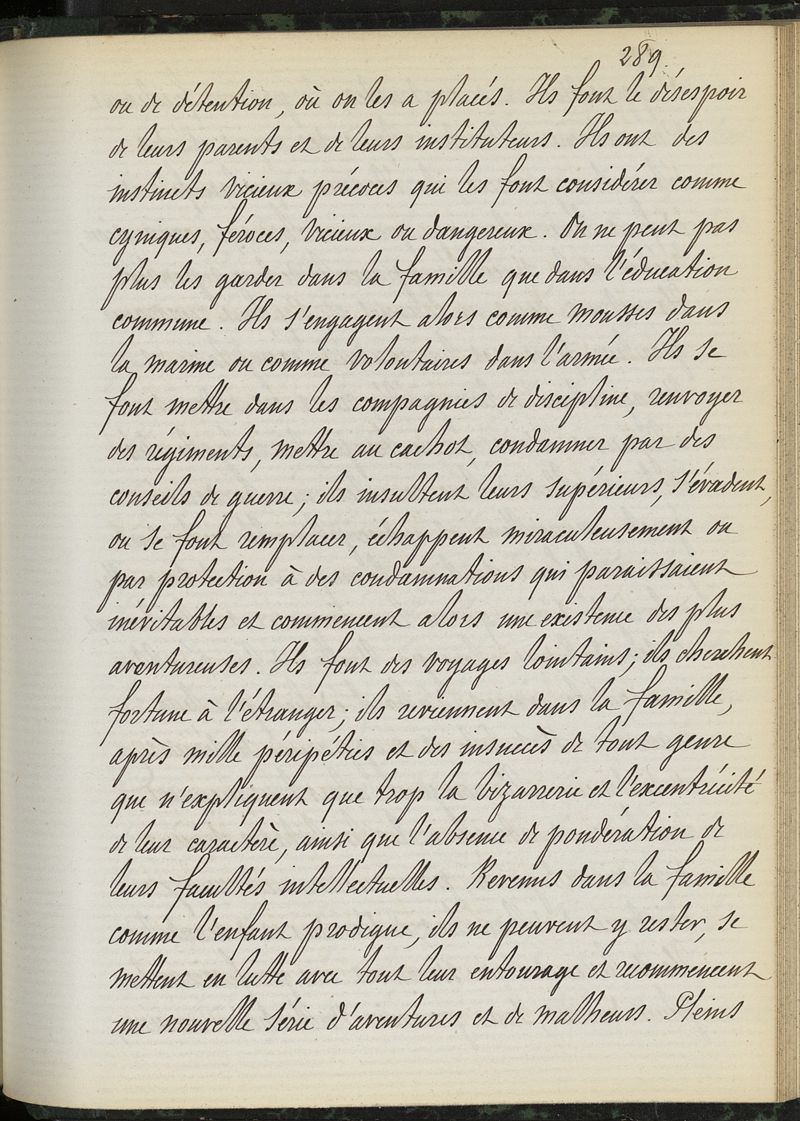 289.
ou de détention, où on les a placés. Ils font le désespoir
de leurs parents et de leurs instituteurs. Ils ont des
instincts vicieux précoces qui les font considérer comme
cyniques, féroces, vicieux ou dangereux. On ne peut pas
plus les garder dans la famille que dans l'éducation
commune. Ils s'engagent alors comme mousses dans
la marine ou comme volontaires dans l'armée. Ils se
font mettre dans les compagnies de discipline, renvoyer
des régiments, mettre au cachot, condamner par des
conseils de guerre; ils insultent leurs supérieurs, s'évadent,
ou se font remplacer, échappent miraculeusement ou
par protection à des condamnations qui paraissaient
inévitables et commencent alors une existence des plus
aventureuses. Ils font des voyages lointains; ils cherchent
fortune à l'étranger; ils reviennent dans la famille,
après mille péripéties et des insuccès de tout genre
que n'expliquent que trop la bizarrerie et l'excentricité
de leur caractère, ainsi que l'absence de pondération de
leurs facultés intellectuelles. Revenus dans la famille
comme l'enfant prodigue, ils ne peuvent y rester, se
mettent en lutte avec tout leur entourage et recommencent
une nouvelle série d'aventures et de malheurs. Pleins